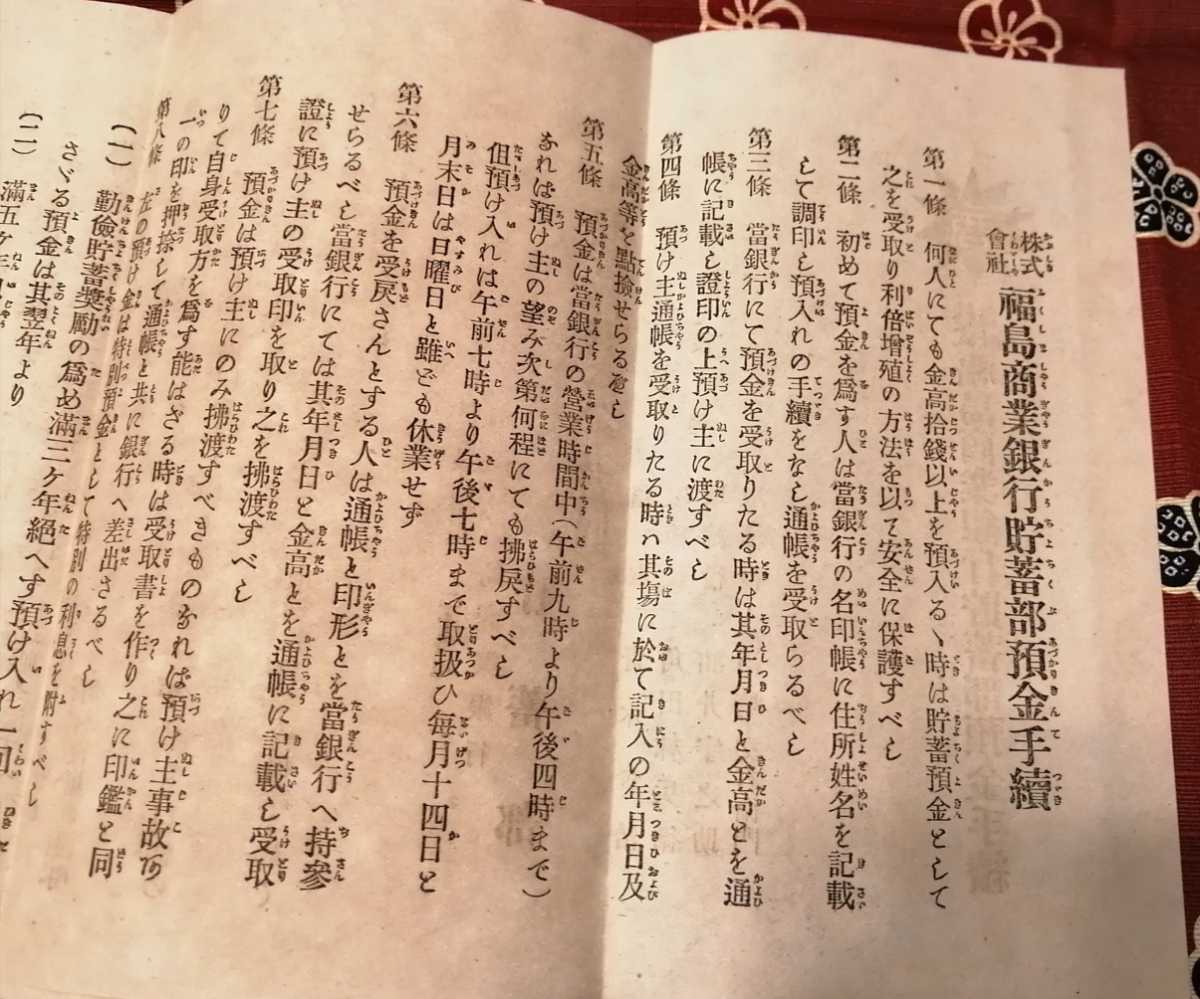 株式會社福島商業銀行貯蓄部預金手續
第一條　何人にても金高拾錢以上を預入るヽ時は貯蓄預金として
之を受取り利倍增殖の方法を以て安全に保護すべし
第二條　初めて預金を爲す人は當銀行の名印帳に住所姓名を記載
して調印し預入れの手續をなし通帳を受取らるべし
第三條　當銀行にて預金を受取りたる時は其年月日と金高とを通
帳に記載し證印の上預け主に渡すべし
第四條　預け主通帳を受取りたる時ハ其塲に於て記入の年月日及
金高等を點撿せらるべし
第五條　預金は當銀行の營業時間中（午前九時より午後四時まで）
なれは預け主の望み次第何程にても拂戾すべし
但預け入れは午前七時より午後七時まで取扱ひ每月十四日と
月末日は日曜日と雖ども休業せず
第六條　預金を受戾さんとする人は通帳と印形とを當銀行へ持參
せらるべし當銀行にては其年月日と金高とを通帳に記載し受取
證に預け主の受取印を取り之を拂渡すべし
第七條　預金は預け主にのみ拂渡すべきものなれば預け主事故あ
りて自身受取方を爲す能はざる時は受取書を作り之に印鑑と同
一の印を押捺して通帳と共に銀行へ差出さるべし
第八條　左の預け金は特別預金として特別の利息を附すべし
（一）　勤儉貯蓄奬勵の爲め滿三ヶ年絕へす預け入れ一回
さゞる預金は其翌年より
（二）　滿五ヶ年